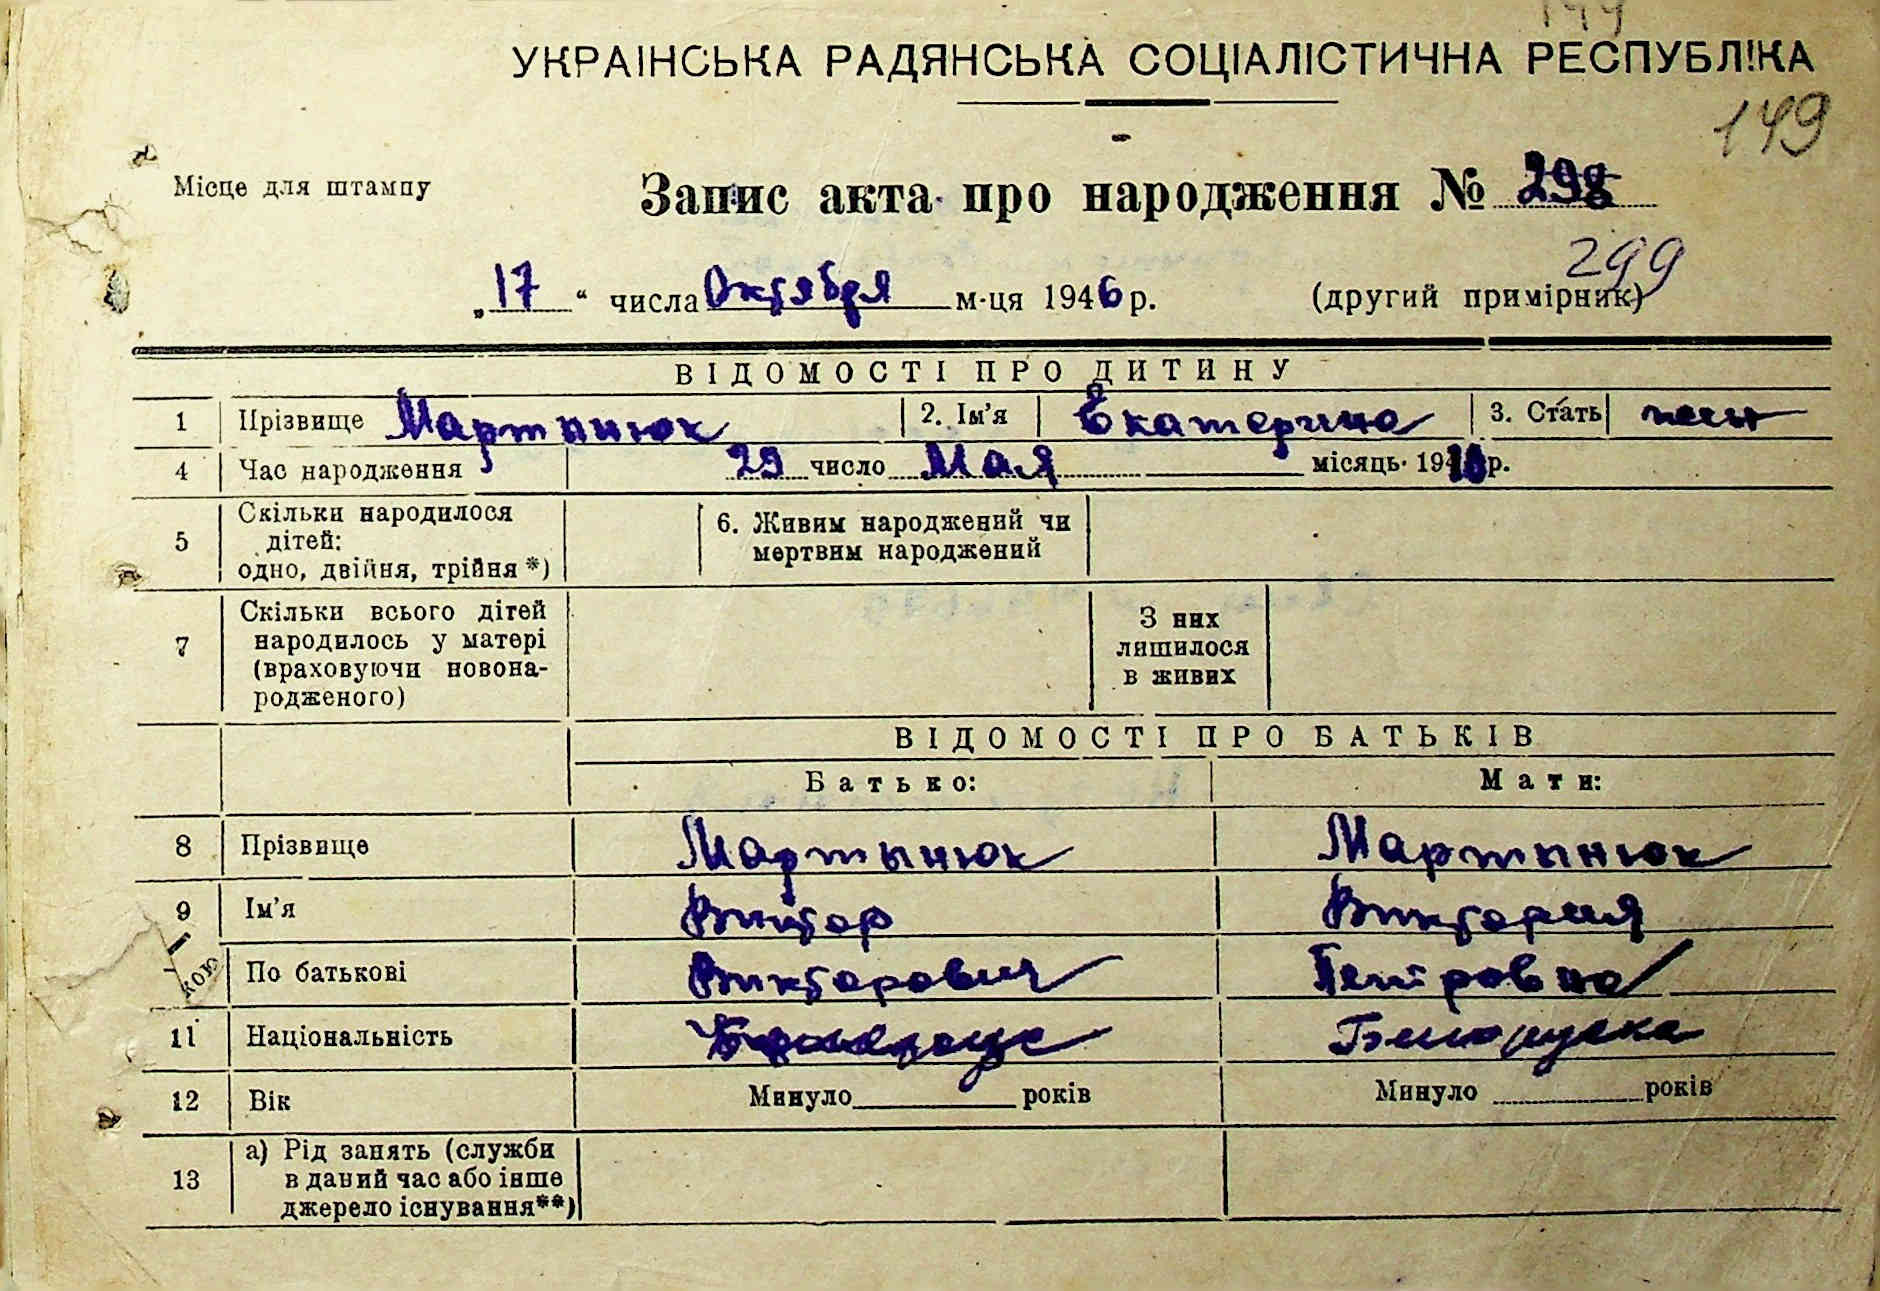 УКРАЇНСЬКА РАДЯНСЬКА СОЦІАЛІСТИЧНА РЕСПУБЛІКА
149
Місце для штампу
Запис акта про народження № 298
299
„17“ числа Октября м-ця 1946 р. (другий примірник)
ВІДОМОСТІ ПРО ДИТИНУ
1 Прізвище Мартынюк 2. Ім’я Екатерина 3. Стать жен
4 Час народження 29 число Мая місяць 19 р.
5 Скільки народилося дітей: одно, двійня, трійня *) 6. Живим народжений чи мертвим народжений
7 Скільки всього дітей народилось у матері (враховуючи новона-родженого) З них лишилося в живих
ВІДОМОСТІ ПРО БАТЬКІВ
Батько: Мати:
8 Прізвище Мартынюк Мартынюк
9 Ім’я Виктор Виктория
кою По батькові Викторович Петровна
11 Національність Белоруска
12 Вік Минуло років Минуло років
13 а) Рід занять (служби в даний час або інше джерело існування**)